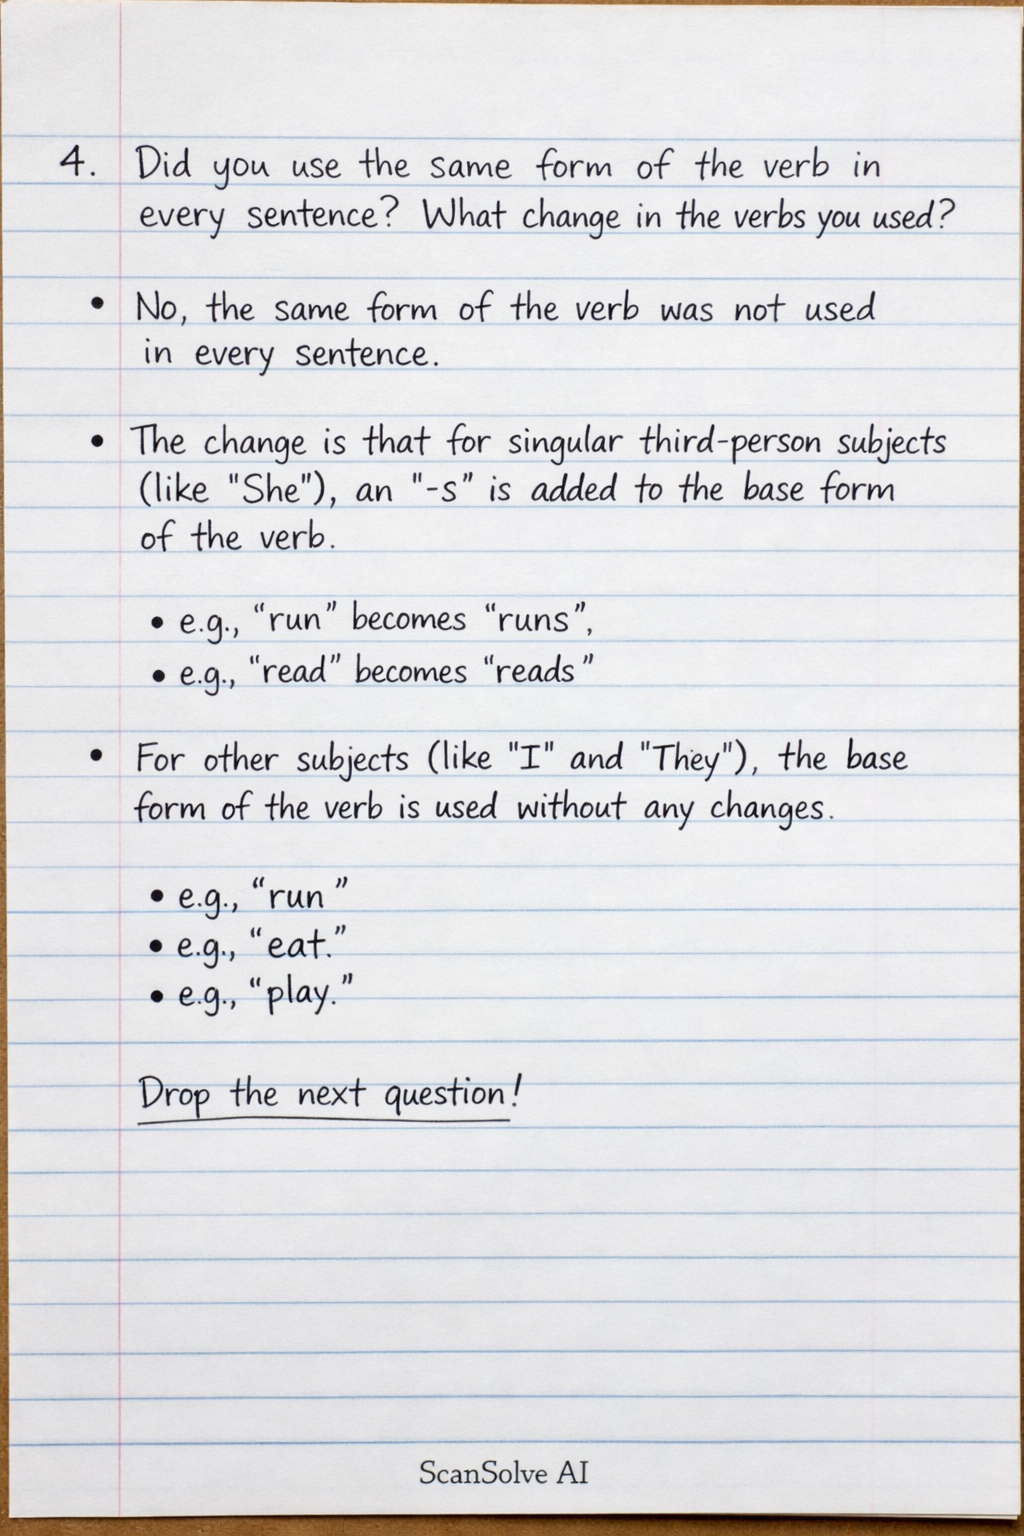 4. Did you use the same form of the verb in
every sentence? What change in the verbs you used?
• No, the same form of the verb was not used
in every sentence.
• The change is that for singular third-person subjects
(like "She"), an "-s" is added to the base form
of the verb.
• e.g., “run” becomes “runs”,
• e.g., “read” becomes “reads”
• For other subjects (like "I" and "They"), the base
form of the verb is used without any changes.
• e.g., “run ”
• e.g., “eat.”
• e.g., “play.”
Drop the next question!
ScanSolve AI